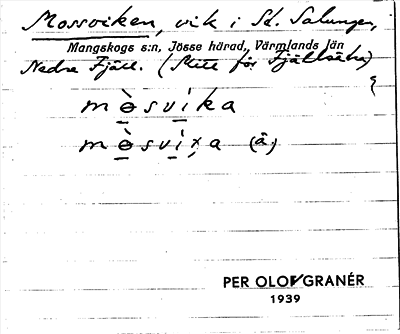 Mossviken, vik i Sd. Salungen,
Mangskogs s:n, Jösse härad, Värmlands län
Nedre Fjäll. (Skill för Fjällsäka)
mə̀svíka
mə̀svíxa (å)
PER OLOV GRANÉR
1939